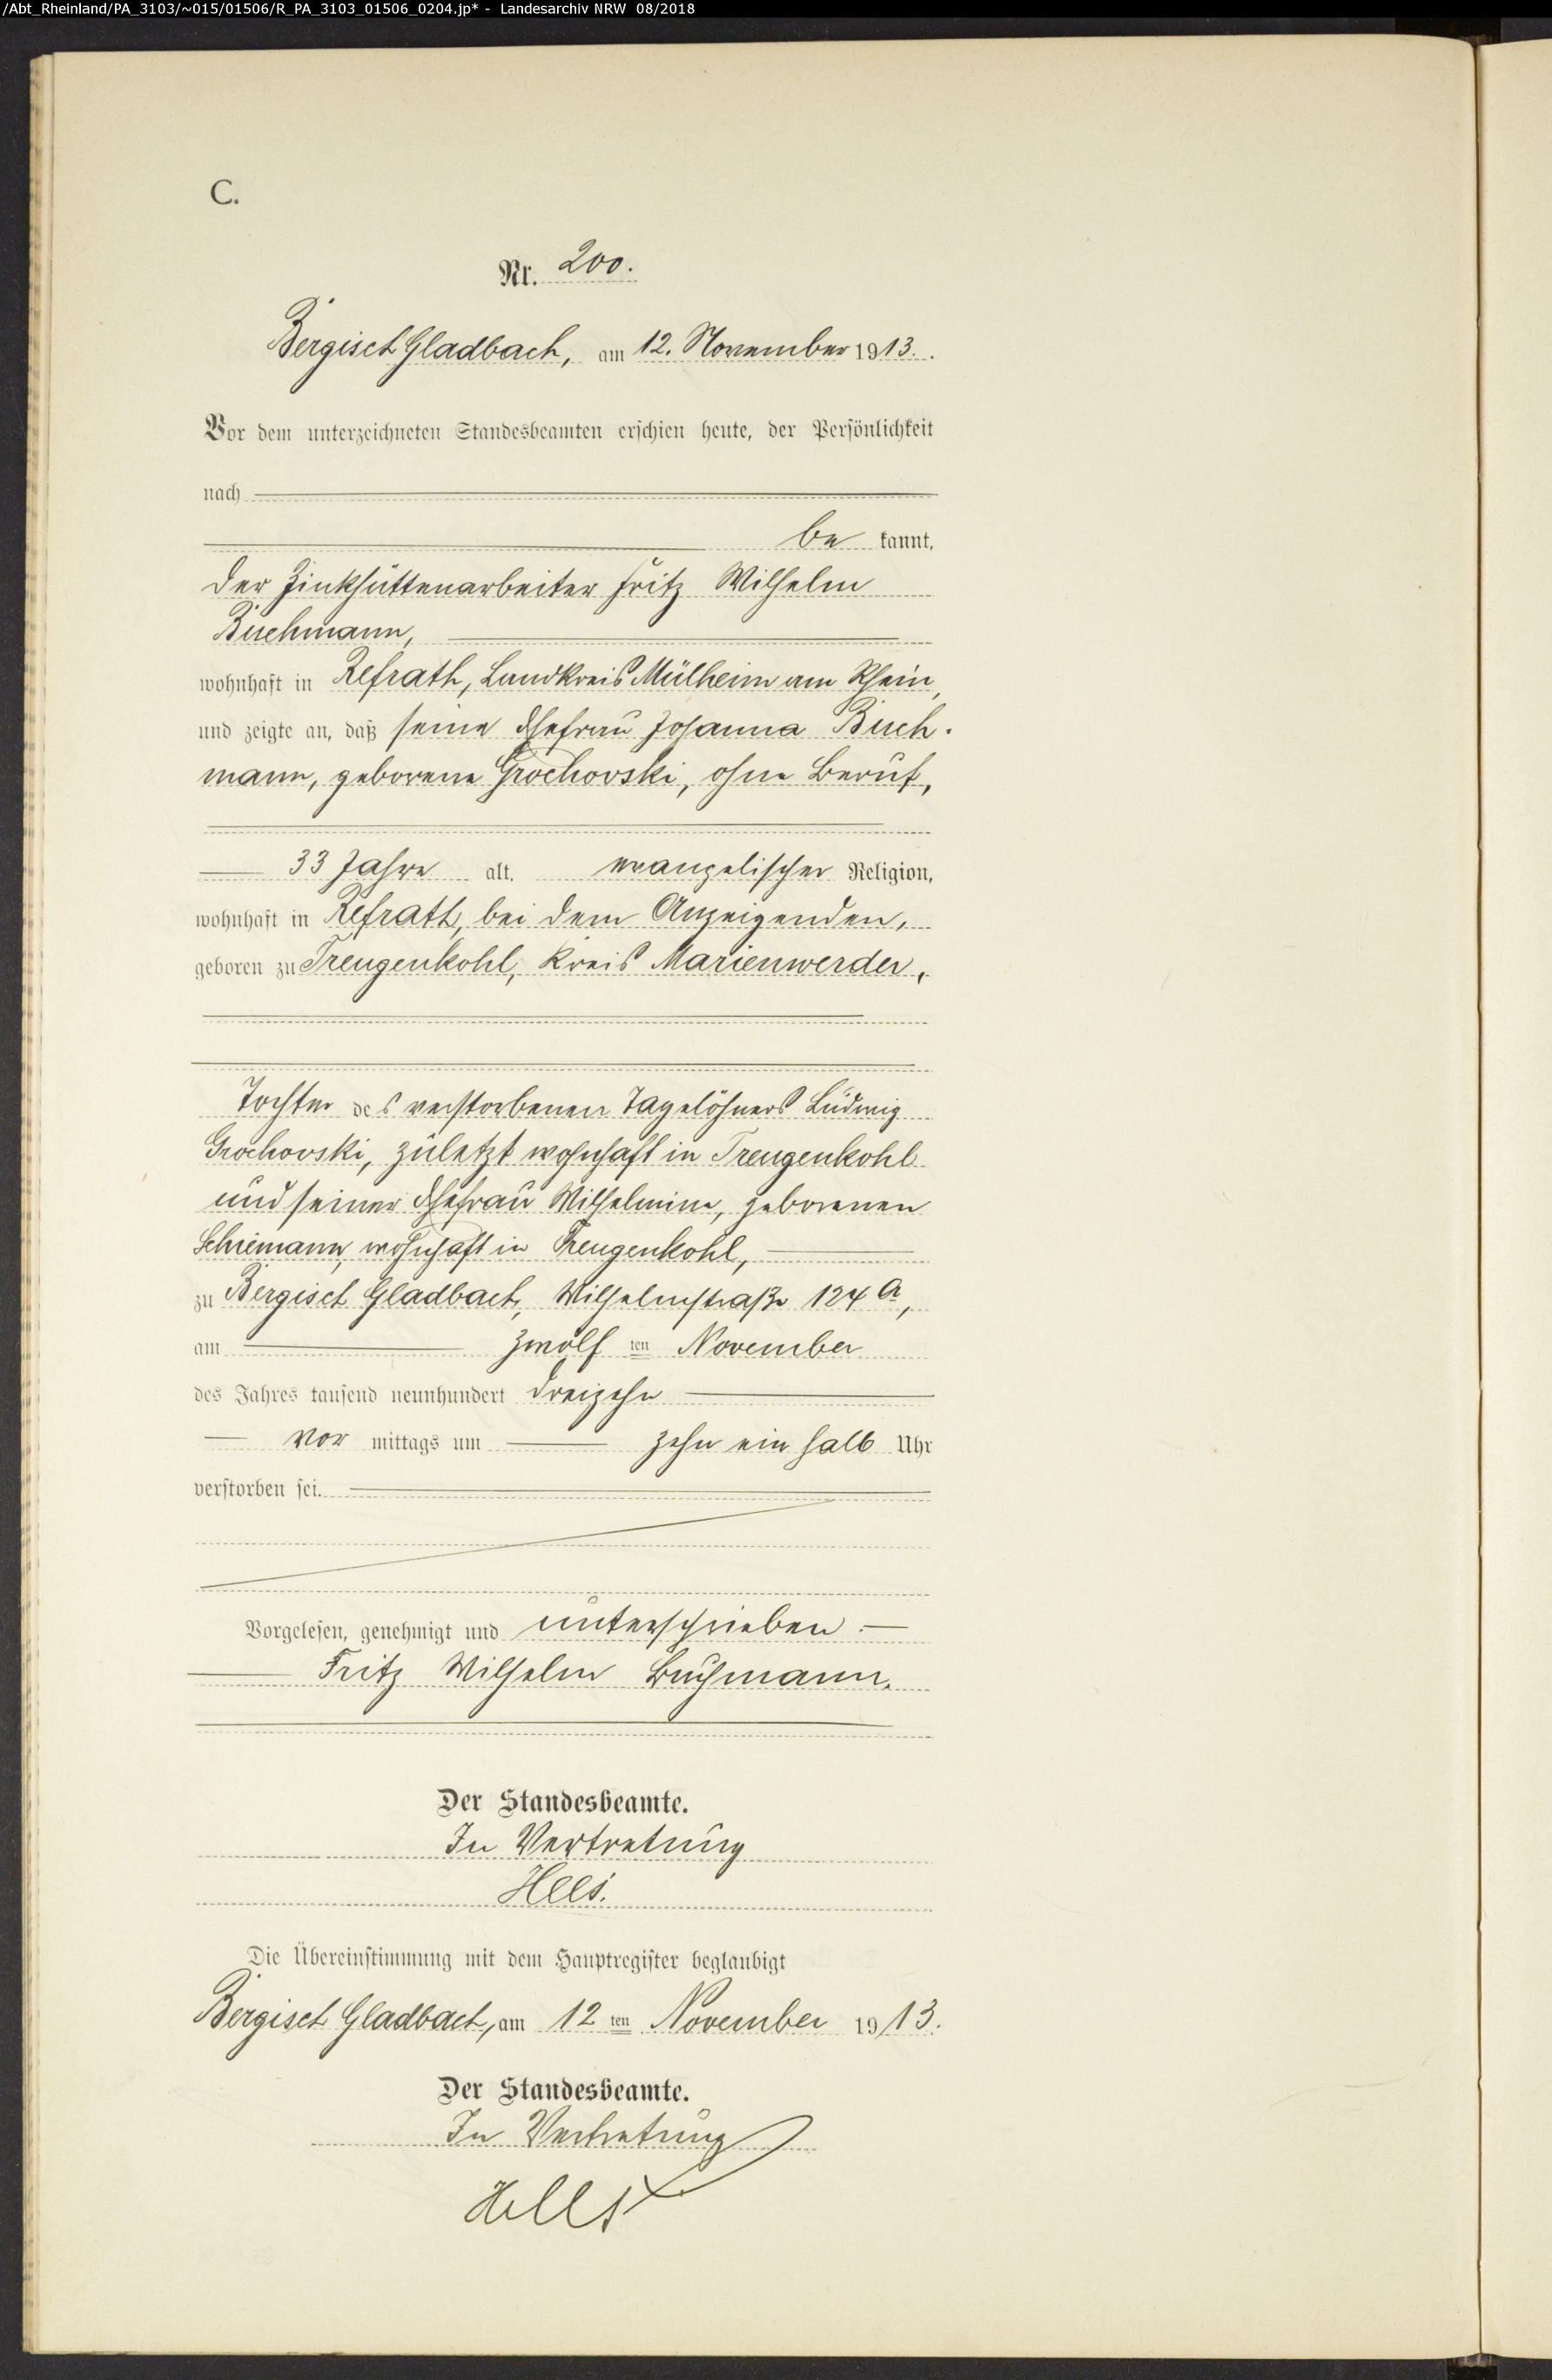 /Abt_Rheinland/PA_3103/~015/01506/R_PA_3103_01506_0204.jp* - Landesarchiv NRW 08/2018
C.
Nr. 200.
Bergisch Gladbach, am 12. November 1913.
Vor dem unterzeichneten Standesbeamten erschien heute, der Persönlichkeit
nach
be kannt,
der Zinkhüttenarbeiter Fritz Wilhelm
Buchmann,
wohnhaft in Refrath, Landkreis Mülheim am Rhein,
und zeigte an, daß seine Ehefrau Johanna Buch-
mann, geborene Grochovski, ohne Beruf,
33 Jahre alt, evangelischer Religion,
wohnhaft in Refrath, bei dem Anzeigenden,
geboren zu Treugenkohl, Kreis Marienwerder,
Tochter des verstorbenen Tagelöhners Ludwig
Grochovski, zuletzt wohnhaft in Treugenkohl
und seiner Ehefrau Wilhelmine, geborenen
Schiemann, wohnhaft in Treugenkohl,
zu Bergisch Gladbach, Wilhelmstraße 124 a,
am zwölf ten November
des Jahres tausend neunhundert dreizehn
vor mittags um zehn ein halb Uhr
verstorben sei.
Vorgelesen, genehmigt und unterschrieben.
Fritz Wilhelm Buchmann.
Der Standesbeamte.
In Vertretung
Hees.
Die Übereinstimmung mit dem Hauptregister beglaubigt
Bergisch Gladbach, am 12 ten November 1913.
Der Standesbeamte.
In Vertretung
Hees